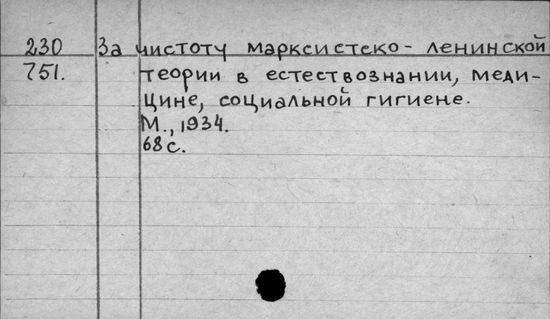 230 За чистоту марксистско-ленинской
751. теории в естествознании, меди-
цине, социальной гигиене.
М., 1934.
68 с.